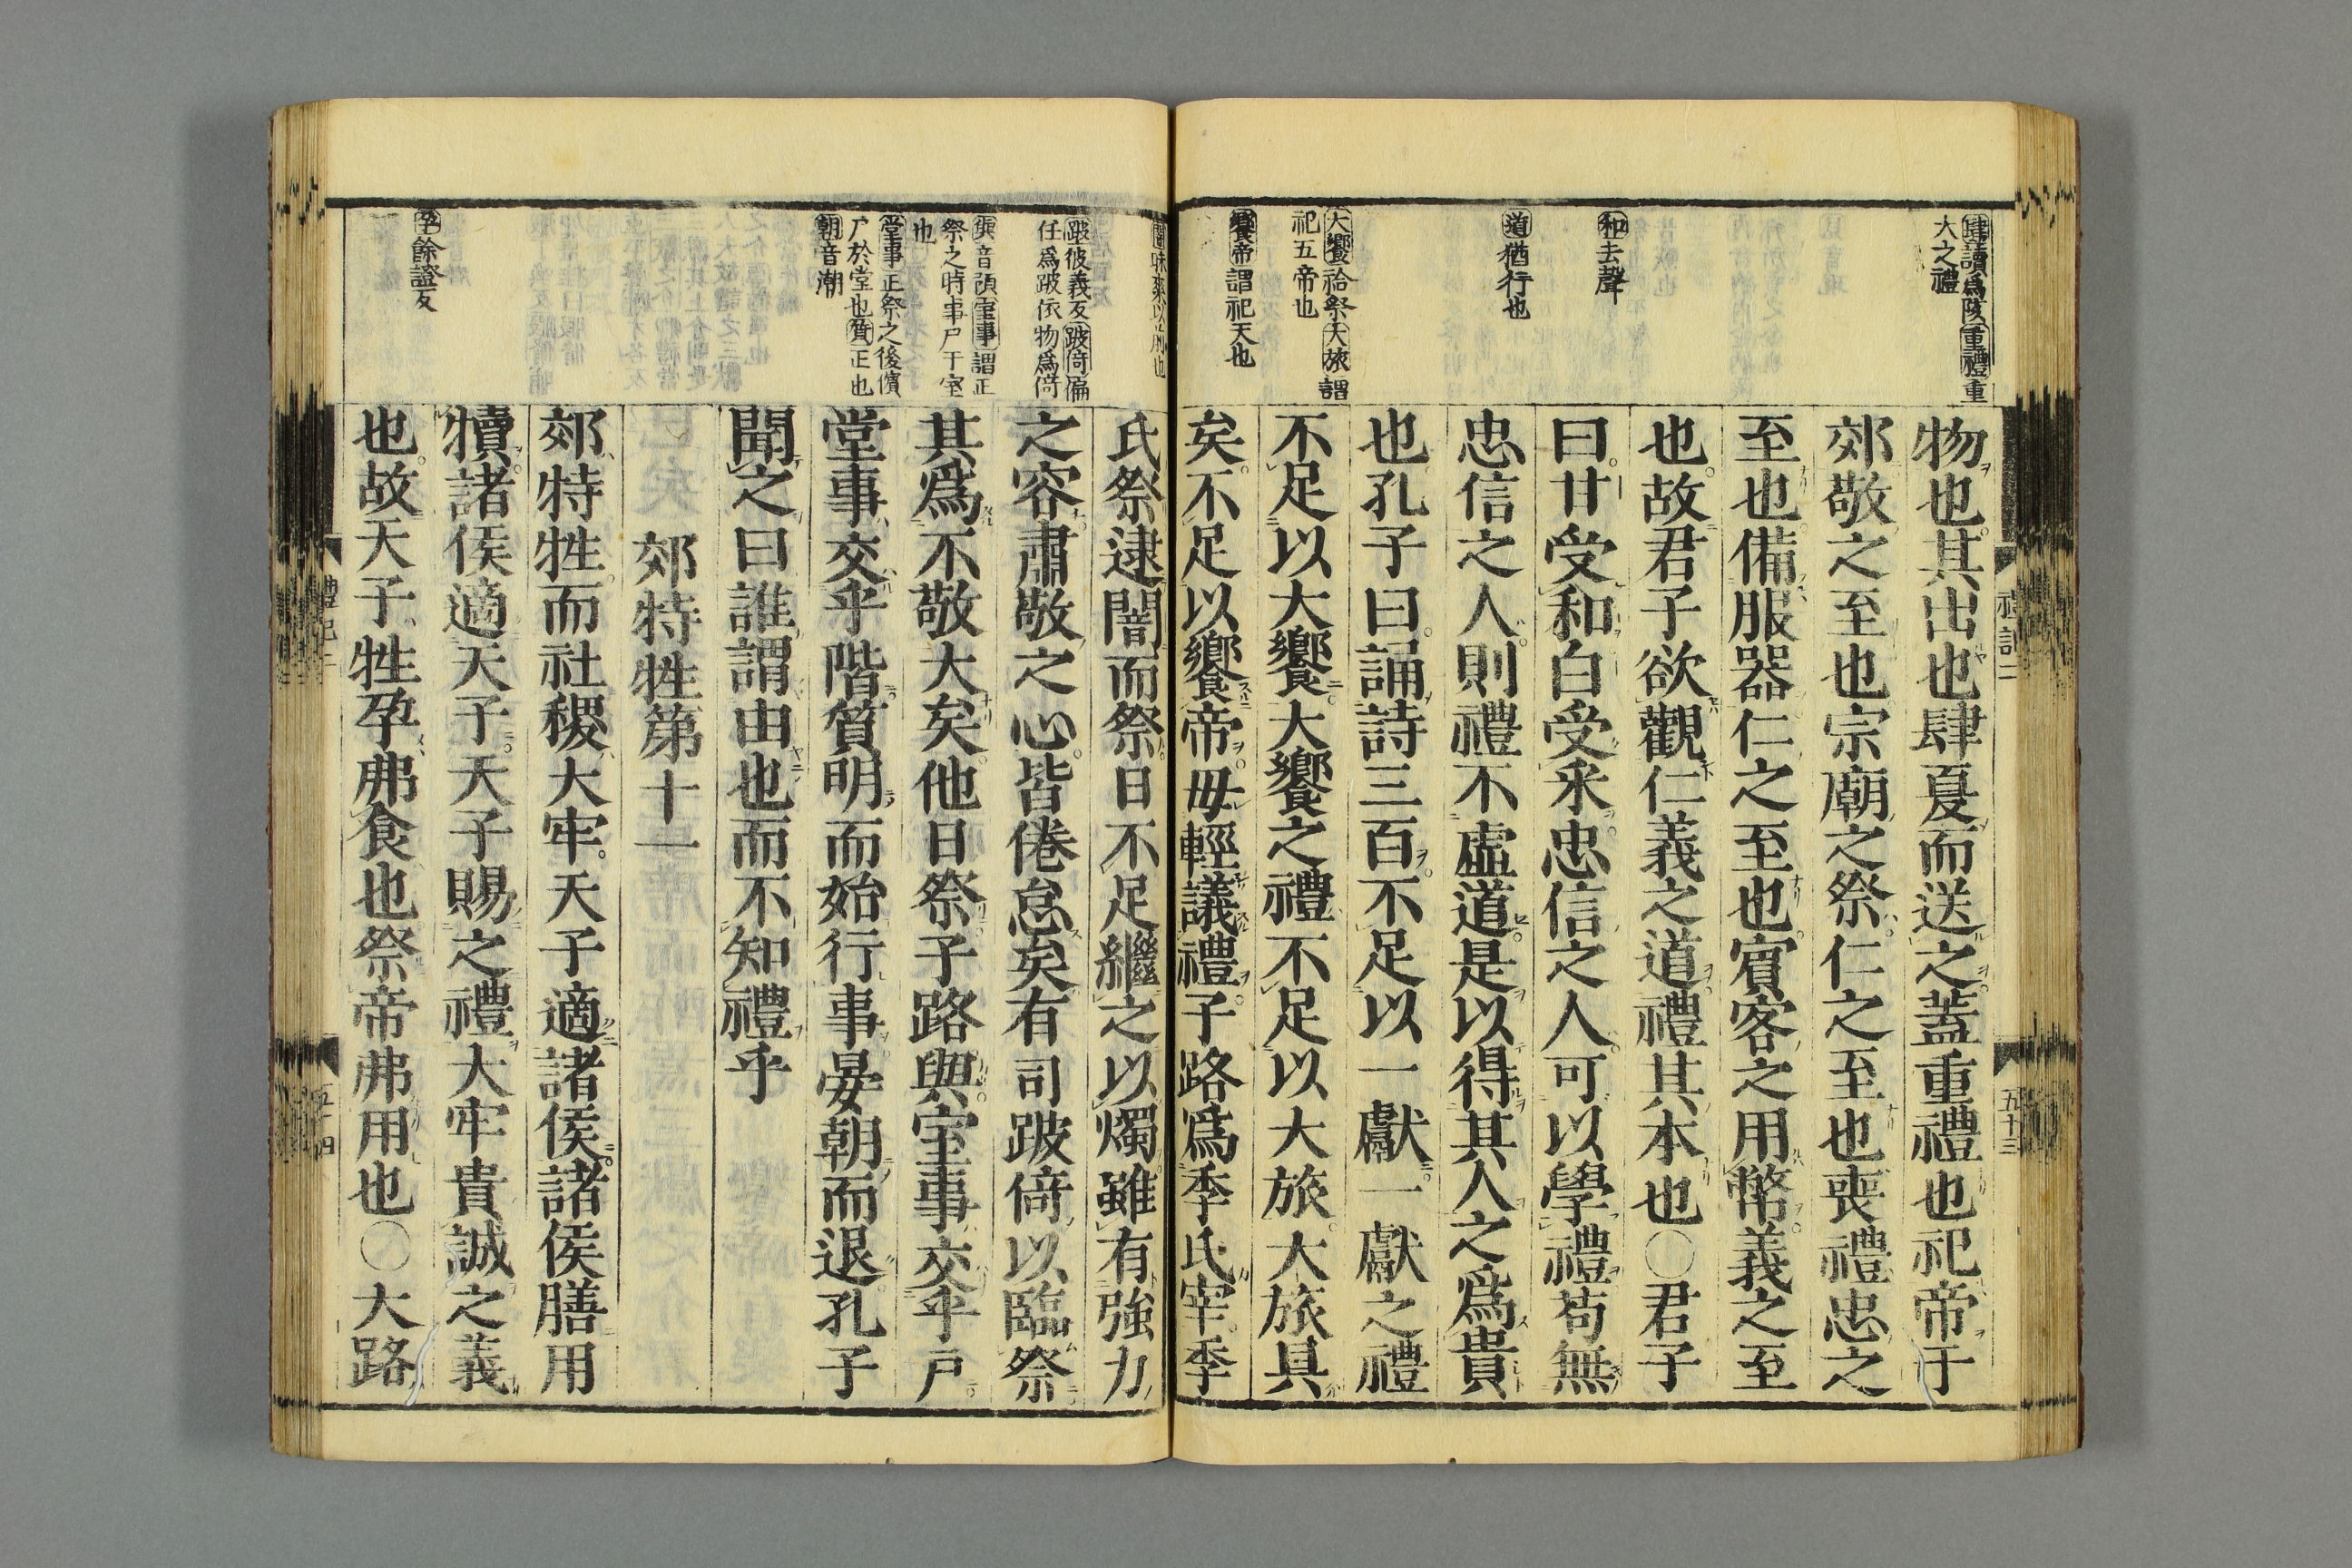 肆讀爲陔重禮重
大之禮
和去聲
道猶行也
大饗祫祭大旅謂
祀五帝也
饗帝謂祀天也
物也其出也肆夏而送之蓋重禮也祀帝于
郊敬之至也宗廟之祭仁之至也喪禮忠之
至也備服器仁之至也賔客之用幣義之至
也故君子欲觀仁義之道禮其本也〇君子
曰甘受和白受采忠信之人可以學禮苟無
忠信之人則禮不虛道是以得其人之爲貴
也孔子曰誦詩三百不足以一獻一獻之禮
不足以大饗大饗之禮不足以大旅大旅具
矣不足以饗帝毋輕議禮子路爲季氏宰季
五十三
跛彼義反跛倚偏
任爲跛依物爲倚
祭之時事尸于室
也
堂事正祭之後儐
尸於堂也質正也
朝音潮
孕餘證反
氏祭逮闇而祭日不足繼之以燭雖有強力
之容肅敬之心皆倦怠矣有司跛倚以臨祭
其爲不敬大矣他日祭子路與室事交乎戶
堂事交乎階質明而始行事晏朝而退孔子
聞之曰誰謂由也而不知禮乎
郊特牲第十一
郊特牲而社稷大牢天子適諸侯諸侯膳用
犢諸侯適天子天子賜之禮大牢貴誠之義
也故天子牲孕弗食也祭帝弗用也〇大路
禮記二
五十四